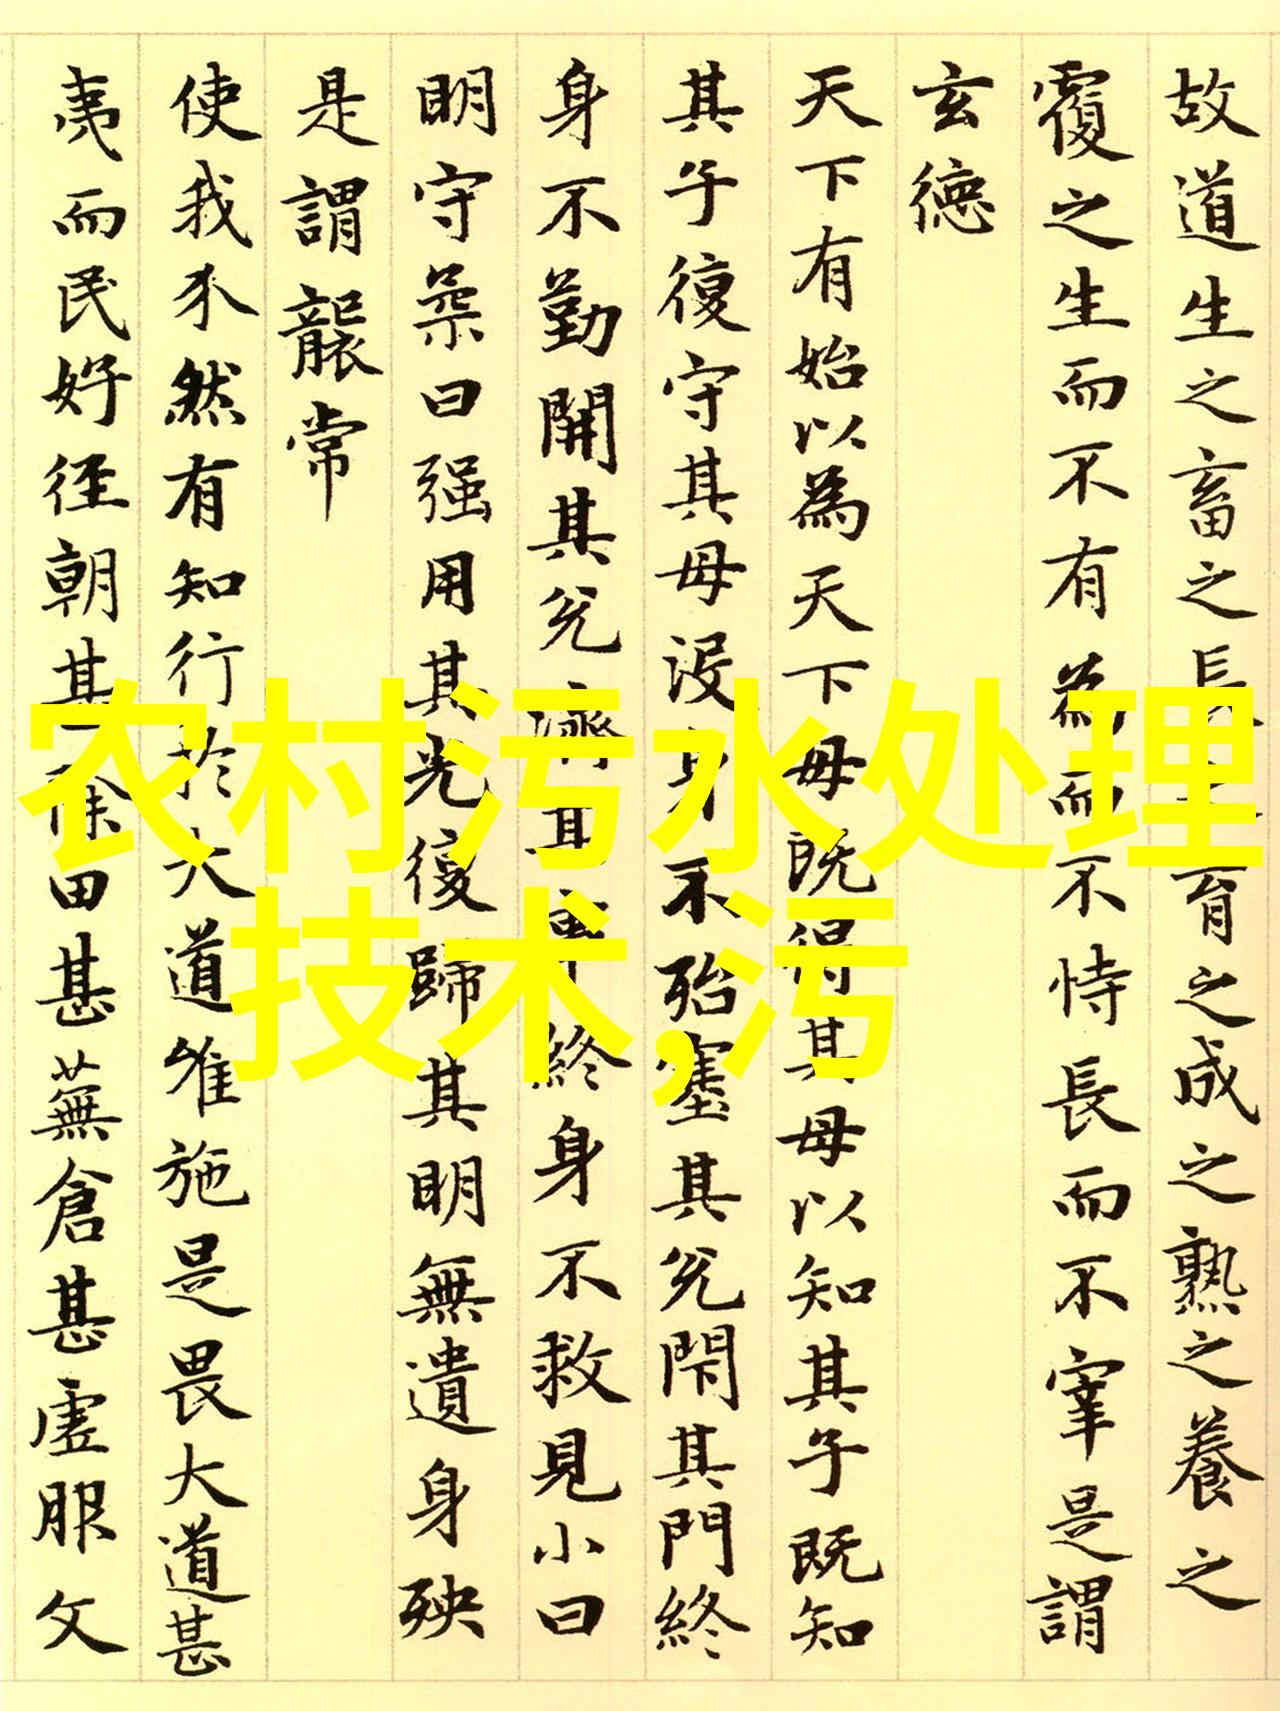 故道生之畜之長之育之成之熟之養之
覆之生而不有為而不恃長而不宰是謂
玄德
天下有始以為天下母既得其母以知其子既知
其子復守其母沒身不殆塞其兊閇其門終
身不勤開其兊濟其事終身不救見小曰
明守柔曰强用其光復歸其明無遺身殃
是謂襲常
使我介然有知行於大道唯施是畏大道甚
夷而民好徑朝甚除田甚蕪倉甚虛服文
农村污水处理
技术,污